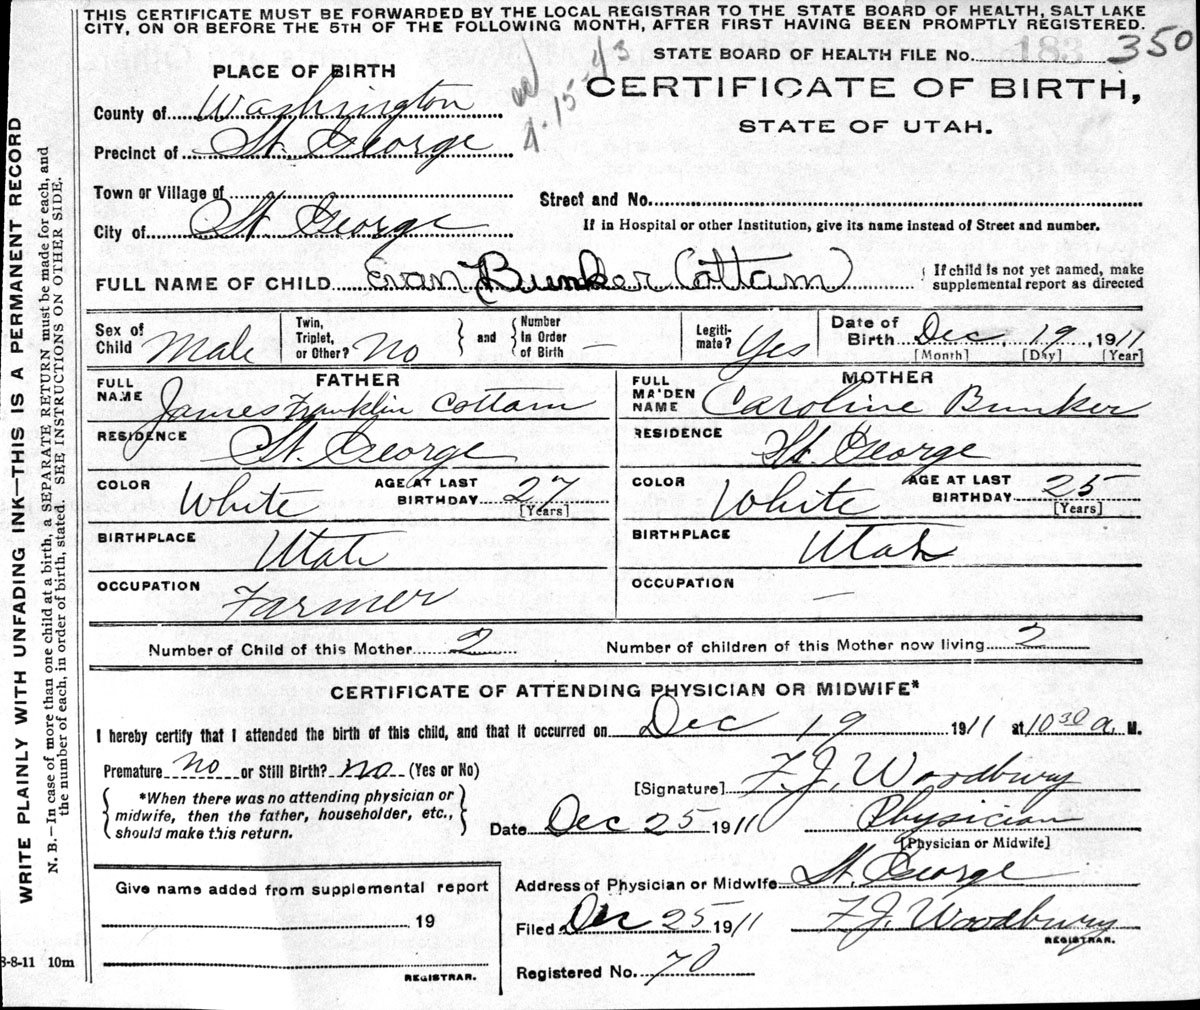 THIS CERTIFICATE MUST BE FORWARDED BY THE LOCAL REGISTRAR TO THE STATE BOARD OF HEALTH, SALT LAKE
CITY, ON OR BEFORE THE 5TH OF THE FOLLOWING MONTH, AFTER FIRST HAVING BEEN PROMPTLY REGISTERED.
STATE BOARD OF HEALTH FILE No. 183 350
PLACE OF BIRTH
CERTIFICATE OF BIRTH,
STATE OF UTAH.
County of Washington
Precinct of St. George
Town or Village of
Street and No.
City of St George
If in Hospital or other Institution, give its name instead of Street and number.
FULL NAME OF CHILD Evan Bunker Cottam { If child is not yet named, make supplemental report as directed
Sex of Child Male Twin, Triplet, or Other? No } and { Number In Order of Birth – Legiti-mate? Yes Date of Birth Dec, 19, 1911
[Month] [Day] [Year]
FATHER
MOTHER
FULL NAME James Franklin Cottam
FULL MAIDEN NAME Caroline Bunker
RESIDENCE St. George
RESIDENCE St. George
COLOR White AGE AT LAST BIRTHDAY 27 [Years]
COLOR White AGE AT LAST BIRTHDAY 25 [Years]
BIRTHPLACE Utah
BIRTHPLACE Utah
OCCUPATION Farmer
OCCUPATION –
Number of Child of this Mother 2 Number of children of this Mother now living 2
CERTIFICATE OF ATTENDING PHYSICIAN OR MIDWIFE*
I hereby certify that I attended the birth of this child, and that it occurred on Dec 19 1911 at 10 30 a. M.
Premature no or Still Birth? no (Yes or No)
[Signature] F. J. Woodbury
{ *When there was no attending physician or
midwife, then the father, householder, etc.,
should make this return. }
Date Dec 25 1911 Physician
[Physician or Midwife]
Give name added from supplemental report
19
REGISTRAR.
Address of Physician or Midwife St. George
Filed Dec 25 1911 F. J. Woodbury
REGISTRAR.
Registered No. 70
8-8-11 10m
WRITE PLAINLY WITH UNFADING INK—THIS IS A PERMANENT RECORD
N. B.—In case of more than one child at a birth, a SEPARATE RETURN must be made for each, and
the number of each, in order of birth, stated. SEE INSTRUCTIONS ON OTHER SIDE.